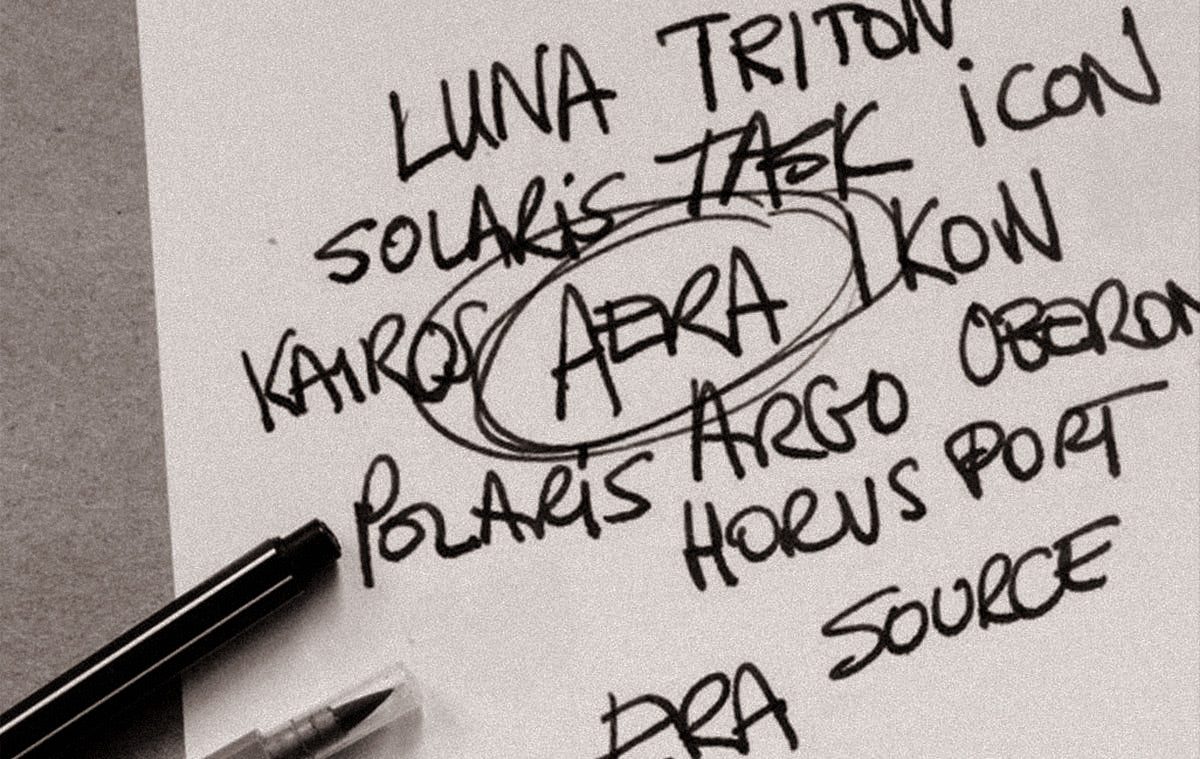 LUNA TRITON
SOLARIS TASK iCON
KAIROS AERA IKON
POLARIS ARGO OBERON
HORUS PORT
SOURCE